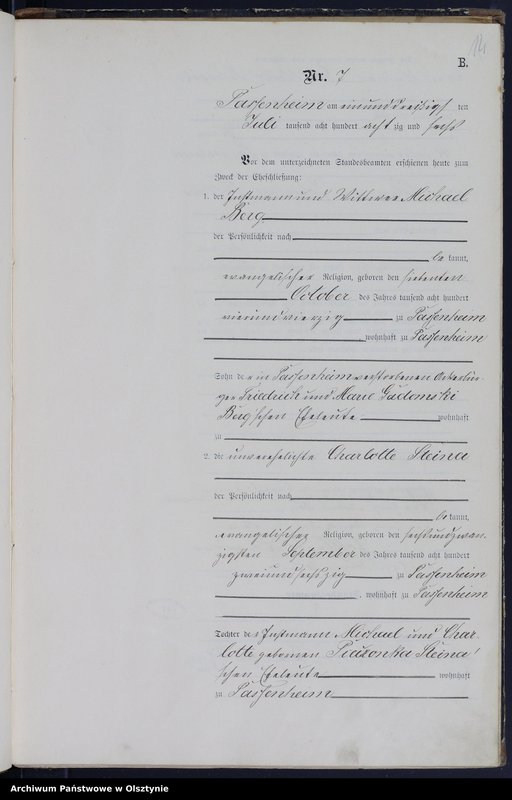 14
B.
Nr. 7
Passenheim am einunddreißigsten
Juli tausend acht hundert achtzig und sechs
Vor dem unterzeichneten Standesbeamten erschienen heute zum
Zweck der Eheschließung:
1. der Instmann und Wittwer Michael
Berg
der Persönlichkeit nach
bekannt,
evangelischer Religion, geboren den siebenten
October des Jahres tausend acht hundert
vierundvierzig zu Passenheim
, wohnhaft zu Passenheim
Sohn der in Passenheim verstorbenen Ackerbür-
ger Friedrich und Marie Gadomski
Berg'schen Eheleute wohnhaft
zu
2. die unverehelichte Charlotte Steina
der Persönlichkeit nach
bekannt,
evangelischer Religion, geboren den sechsundzwan-
zigsten September des Jahres tausend acht hundert
zweiundsechszig zu Passenheim
, wohnhaft zu Passenheim
Tochter der Instmann Michael und Char-
lotte geborenen Steina'
schen Eheleute wohnhaft
zu Passenheim
Archiwum Państwowe w Olsztynie